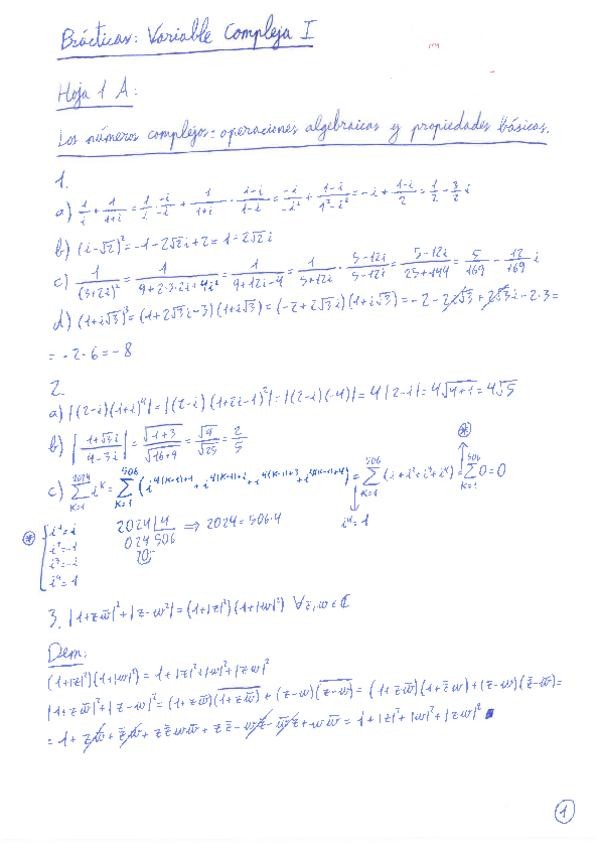 Prácticas: Variable Compleja I
Hoja 1 A:
Los números complejos: operaciones algebraicas y propiedades básicas.
1.
a) 1/i + 1/(1+i) = 1/i · (-i)/(-i) + 1/(1+i) · (1-i)/(1-i) = (-i)/(-i²) + (1-i)/(1²-i²) = -i + (1-i)/2 = 1/2 - 3/2 i
b) (i-√2)² = -1-2√2i+2 = 1-2√2i
c) 1/(3+2i)² = 1/(9+2·3·2i+4i²) = 1/(9+12i-4) = 1/(5+12i) · (5-12i)/(5-12i) = (5-12i)/(25+144) = 5/169 - 12/169 i
d) (1+i√3)³ = (1+2√3i-3)(1+i√3) = (-2+2√3i)(1+i√3) = -2-2√3i+2√3i-2·3=
= -2-6 = -8
2.
a) |(2-i)(1+i)⁴| = |(2-i)(1+2i-1)²| = |(2-i)(-4)| = 4|2-i| = 4√(4+1) = 4√5
b) |(1+√3i)/(4-3i)| = √(1+3)/√(16+9) = √4/√25 = 2/5
c) ∑_{K=1}^{2024} i^K = ∑_{K=1}^{506} (i^{4(K-1)+1} + i^{4(K-1)+2} + i^{4(K-1)+3} + i^{4(K-1)+4}) = ∑_{K=1}^{506} (i+i²+i³+i⁴) = ∑_{K=1}^{506} 0 = 0
i⁴=1
* { i¹=i
i²=-1
i³=-i
i⁴=1
2024 |4 ⇒ 2024=506·4
024 506
0
3. |1+z w̄|²+|z-w|² = (1+|z|²)(1+|w|²) ∀z,w∈ℂ
Dem:
(1+|z|²)(1+|w|²) = 1+|z|²+|w|²+|zw|²
|1+z w̄|²+|z-w|² = (1+z w̄)(\overline{1+z w̄}) + (z-w)(\overline{z-w}) = (1+z w̄)(1+z̄ w)+(z-w)(z̄-w̄)=
= 1+z w̄+z̄ w+z z̄ w w̄+z z̄-w z̄-w̄ z+w w̄ = 1+|z|²+|w|²+|zw|² ■
1